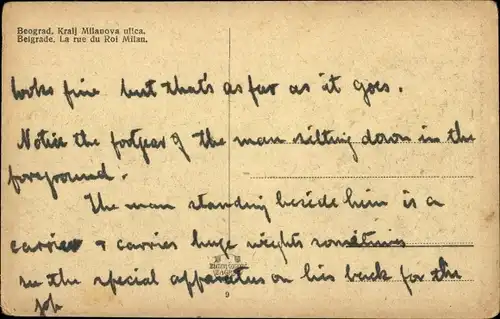 Beograd. Kralj Milanova ulica.
Belgrade. La rue du Roi Milan.
looks fine but that's as far as it goes.
Notice the footgear of the man sitting down in the
foreground.
The man standing beside him is a
carrier & carries huge weights sometimes
in the special apparatus on his back for the
job
9